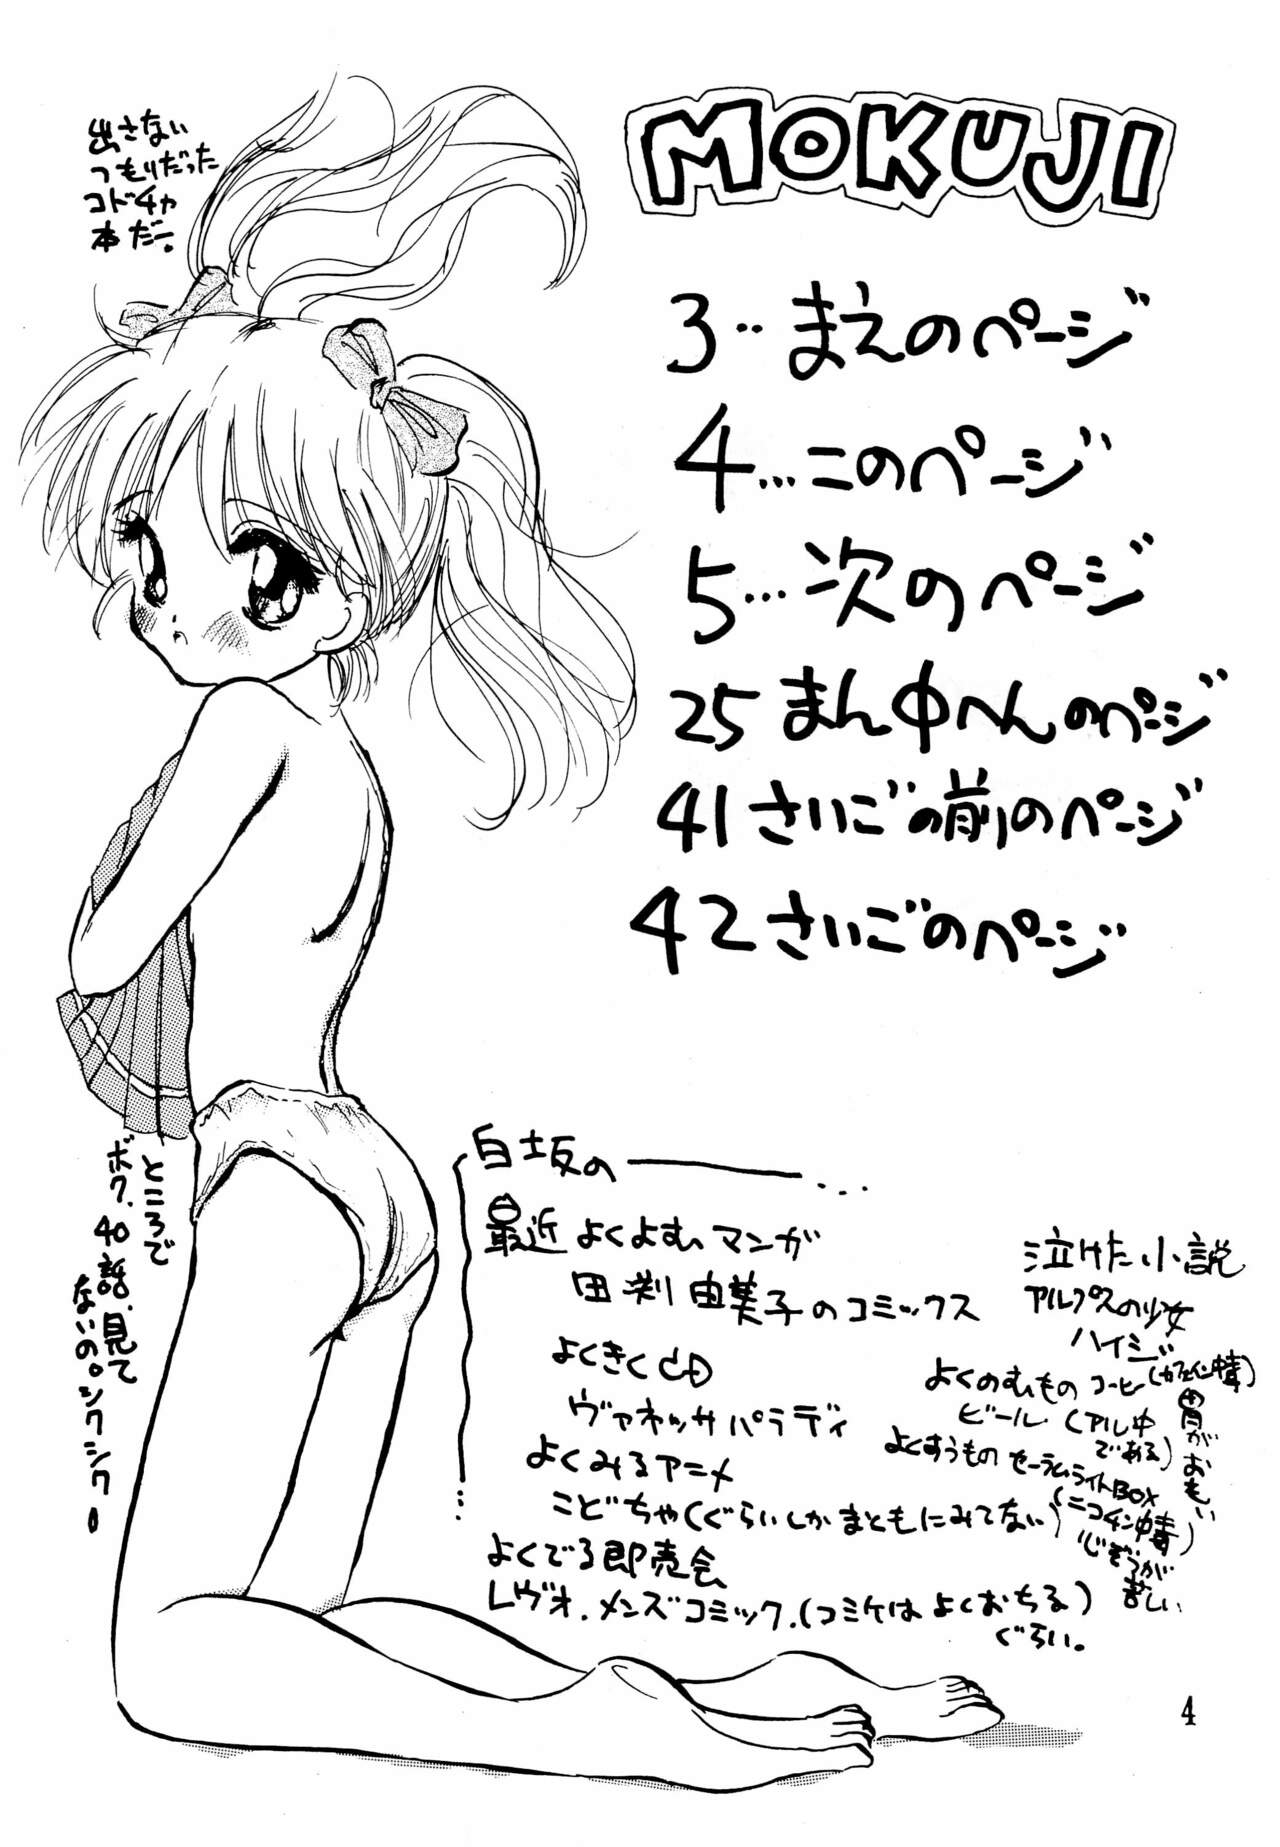 MOKUJI
出さない
つもりだった
コドチャ
本だー。
3‥まえのページ
4…このページ
5…次のページ
25まん中へんのページ
41さいごの前のページ
42さいごのページ
ところで
ボク、40話、見て
ないの。シクシクー
白土坂の
最近よくよむマンガ
田渕由美子のコミックス
よくきくCD
ヴァネッサパラディ
よくみるアニメ
こどちゃ(ぐらいしかまともにみてない)
よくでる即売会
レヴォ.メンズコミック.(コミケはよくおちる)
ぐらい。
泣けた小説
アルプスの少女
ハイジ
よくのむもの コーヒー(カフェイン中毒)
ビール.(アル中
である)
胃がおもい
よくすうもの セーラムライトBOX
(ニコチン中毒)
しんぞうが
苦しい
4